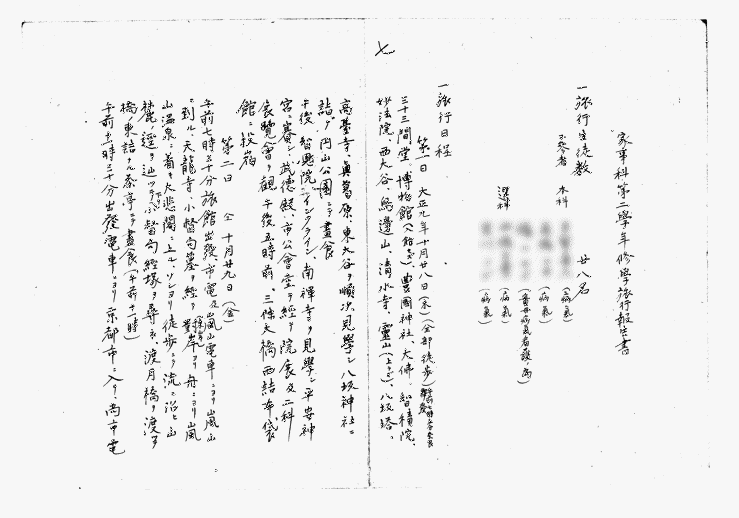 家事科第二學年修學旅行報告書
一旅行生徒數 廿八名
不參者 本科
(病氣)
(病氣)
(病氣)
選科
(病氣)
(病氣)
一旅行日程
第一日 大正九年十月廿八日(木)(全部徒歩)
三十三間堂、博物館、豊國神社、大佛、智積院、
妙法院、西大谷、鳥邊山、清水寺、靈山、八坂塔、
高臺寺、眞葛原、東大谷ヲ順次見學シ八坂神社ニ
詣シ円山公園ニテ晝食
午後 智恩院、インクライン、南禪寺ヲ見學シ平安神
宮ニ賽シ、武德殿、市公會堂ヲ經テ院展及二科
展覽會ヲ觀午後五時前、三條大橋西結布袋
館ニ投宿
第二日 仝十月廿九日(金)
午前七時三十分旅館出發市電及嵐山電車ニヨリ嵐山
ニ到ル、天龍寺、小督局墓ヲ經テ對岸ヨリ舟ニヨリ嵐
山温泉ニ着キ大悲閣ニ上ル、ソレヨリ徒歩ニテ流ニ沿ヒ山
麓ノ徑ヲ辿ツテ小督局經塚ヲ尋ネ、渡月橋ヲ渡リ
橋ノ東詰ナル茶亭ニテ晝食(午前十一時)
午前十一時三十分出發電車ニヨリ京都市ニ入リ、尚市電